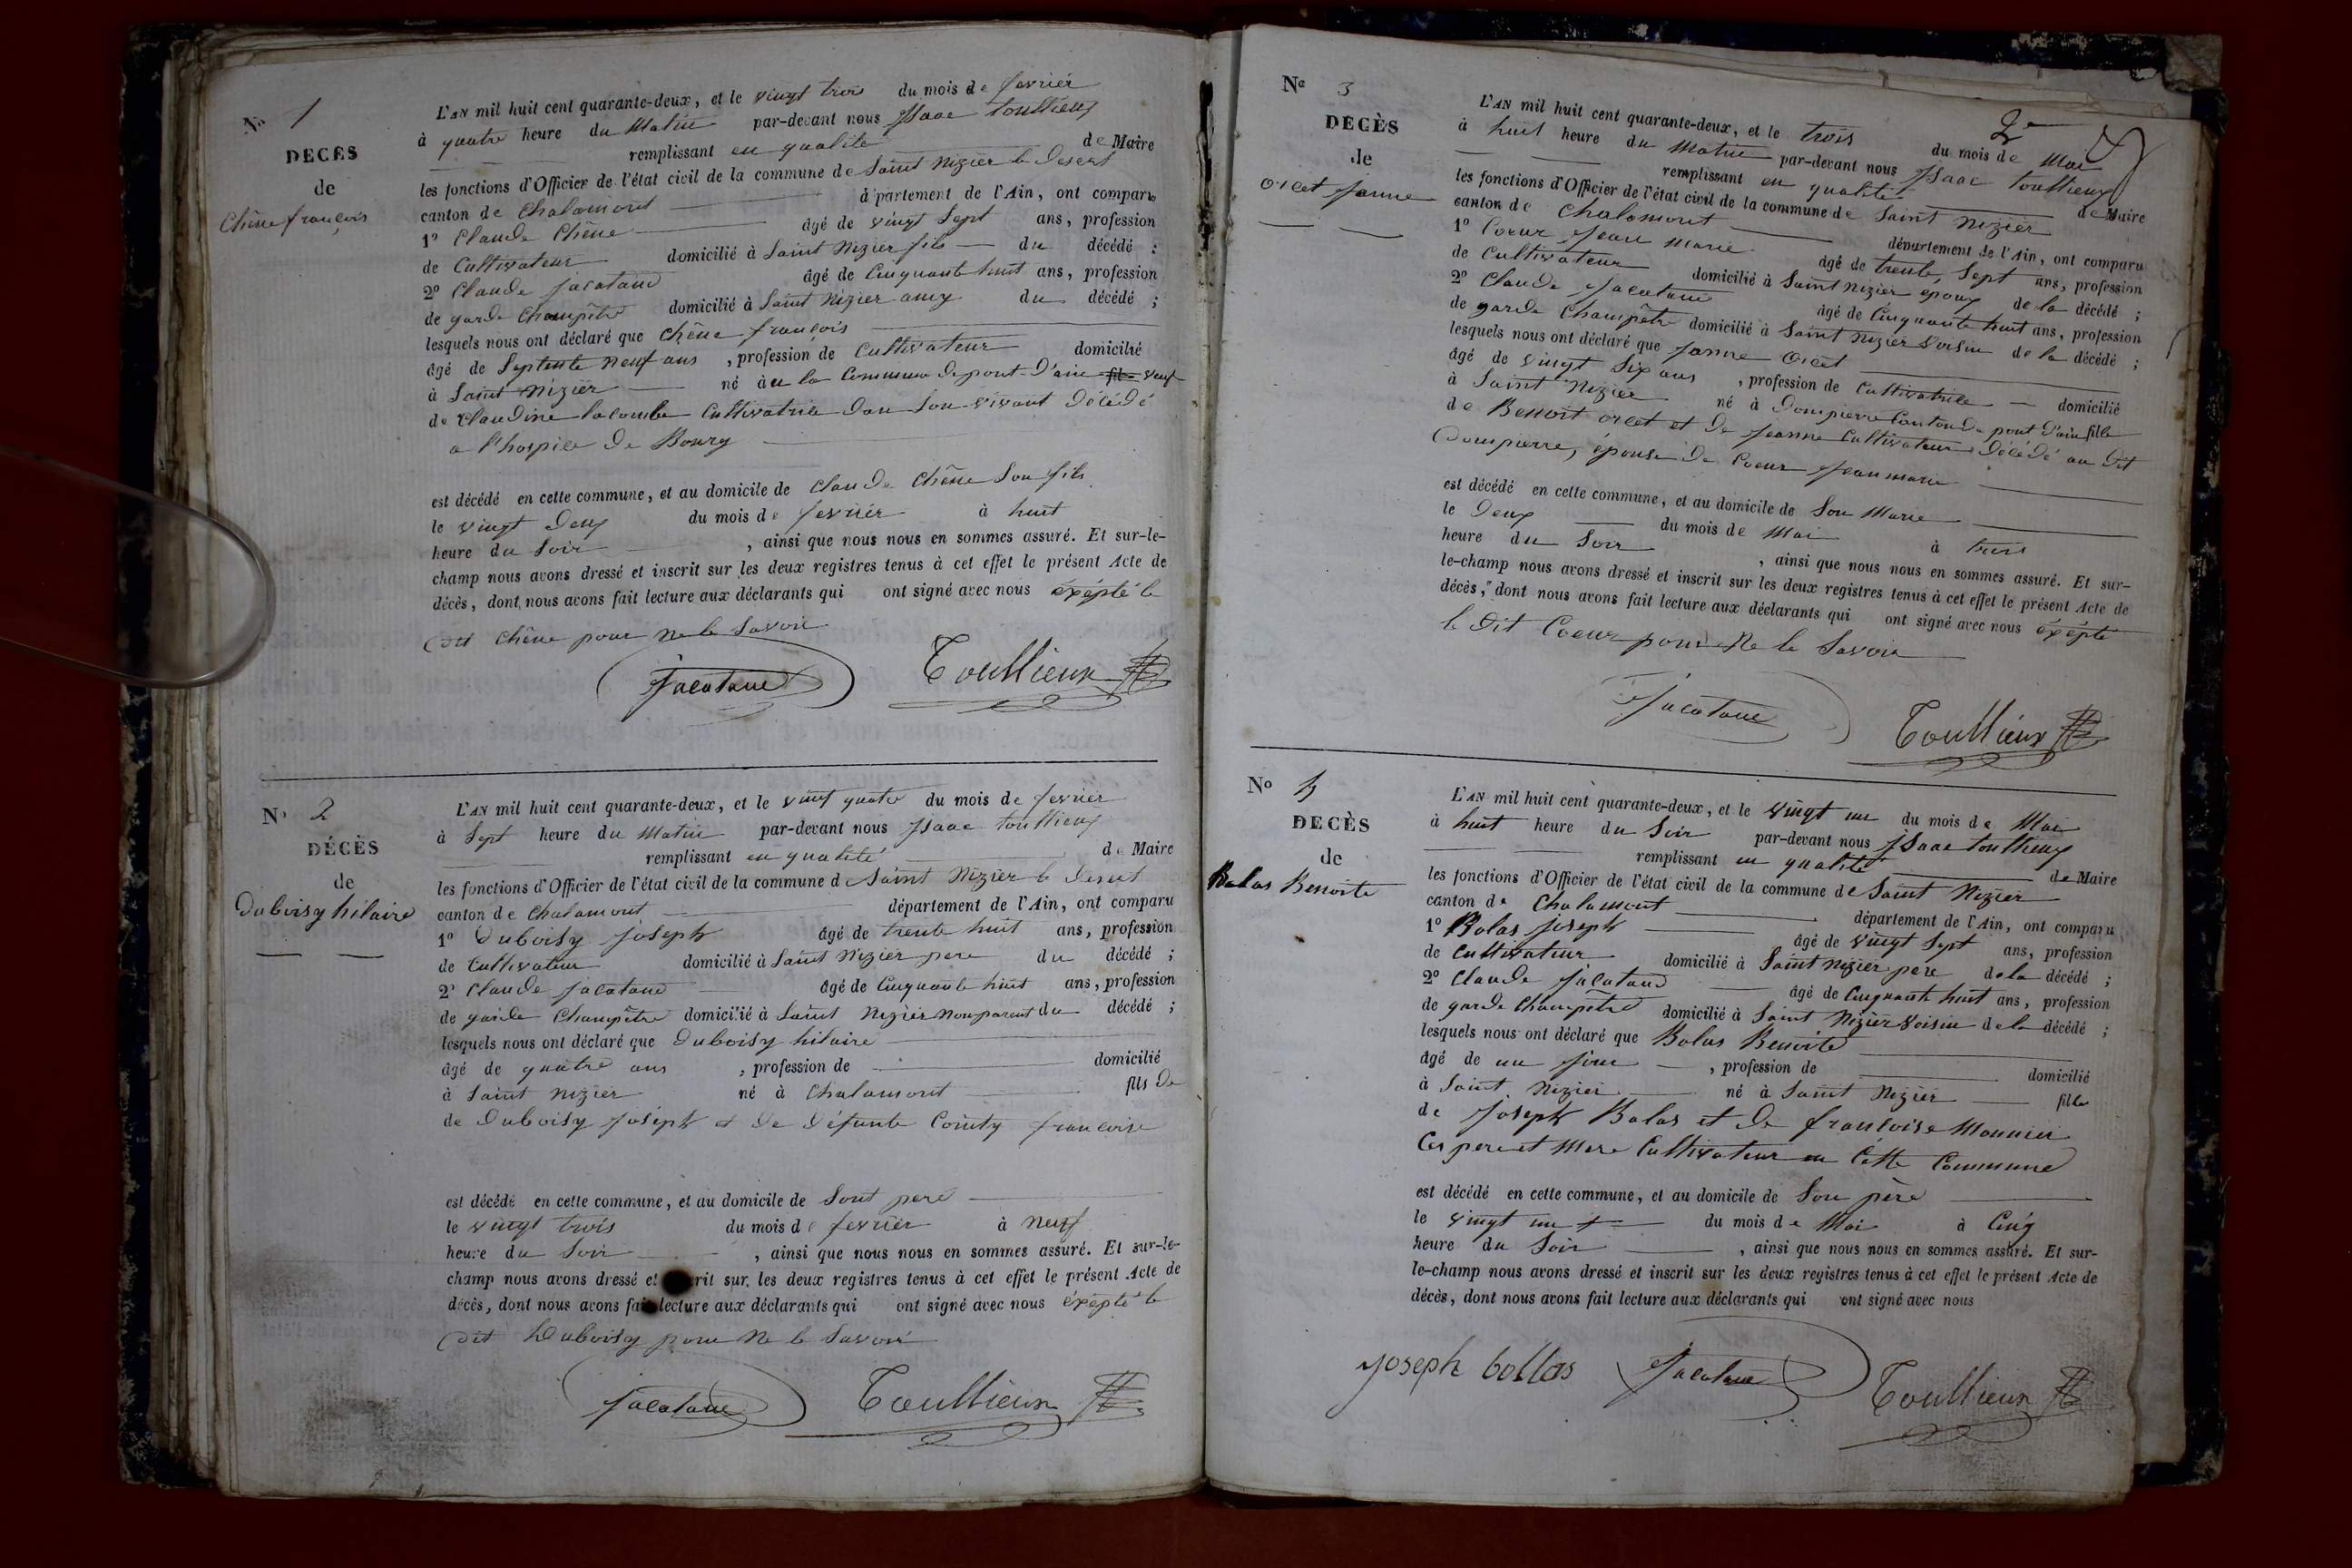 No 1
DECES
de
Chêne françois
L'AN mil huit cent quarante-deux, et le vingt trois du mois de fevrier
à quatre heure du Matin par-devant nous Isaac toullieux
remplissant en qualité de Maire
les fonctions d'Officier de l'état civil de la commune de Saint Nizier le Desert
canton de Chalamont département de l'Ain, ont comparu
1o Claude Chêne âgé de vingt Sept ans, profession
de Cultivateur domicilié à Saint Nizier fils du décédé ;
2o Claude Jacataud âgé de Cinquante huit ans, profession
de garde Champêtre domicilié à Saint Nizier amy du décédé ;
lesquels nous ont déclaré que Chêne françois
âgé de Septente neuf ans , profession de Cultivateur domicilié
à Saint Nizier né à en la Commune de pont-D'ain veuf
de Claudine lacombe Cultivatrice dan Son vivant décédé
a l'hospice de Bourg
est décédé en cette commune, et au domicile de Claude Chêne Son fils
le vingt deux du mois de fevrier à huit
heure du Soir , ainsi que nous nous en sommes assuré. Et sur-le-
champ nous avons dressé et inscrit sur les deux registres tenus à cet effet le présent Acte de
décès, dont nous avons fait lecture aux déclarants qui ont signé avec nous éxépté le
dit Chêne pour ne le Savoir
Jacataud Toullieux
No 2
DÉCÈS
de
Duboisy hilaire
L'AN mil huit cent quarante-deux, et le vint quatre du mois de fevrier
à Sept heure du Matin par-devant nous Isaac toullieux
remplissant en qualité de Maire
les fonctions d'Officier de l'état civil de la commune d Saint Nizier le Desert
canton de Chalamont département de l'Ain, ont comparu
1o Duboisy Joseph âgé de trente huit ans, profession
de Cultivateur domicilié à Saint Nizier pere du décédé ;
2o Claude Jacataud âgé de Cinquante huit ans, profession
de garde Champêtre domicilié à Saint Nizier non parent du décédé ;
lesquels nous ont déclaré que Duboisy hilaire
âgé de quatre ans , profession de domicilié
à Saint Nizier né à Chalamont fils de
de Duboisy Joseph et de défunte Cointy francoise
est décédé en cette commune, et au domicile de Sont pere
le vingt trois du mois de fevrier à Neuf
heure du Soir , ainsi que nous nous en sommes assuré. Et sur-le-
champ nous avons dressé et rit sur les deux registres tenus à cet effet le présent Acte de
décès, dont nous avons fait lecture aux déclarants qui ont signé avec nous éxépté le
dit Duboisy pour Ne le Savoir
Jacataud Toullieux
2e
No 3
DÉCÈS
de
orcet Janne
L'AN mil huit cent quarante-deux, et le trois du mois de Mai
à huit heure du Matin par-devant nous Isaac toullieux
remplissant en qualité de Maire
les fonctions d'Officier de l'état civil de la commune de Saint Nizier
canton de Chalamont département de l'Ain, ont comparu
1o Coeur Jean Marie âgé de trente Sept ans, profession
de Cultivateur domicilié à Saint Nizier époux de la décédé ;
2o Claude Jacataud âgé de Cinquante huit ans, profession
de garde Champêtre domicilié à Saint Nizier Voisin de la décédé ;
lesquels nous ont déclaré que Janne orcet
âgé de vingt Six ans , profession de Cultivatrice domicilié
à Saint Nizier né à Dompierre Canton de pont d'ain fille
de Benoit orcet et de Jeanne Cultivateur décédé au dit
Dompierre, épouse de Coeur Jean marie
est décédé en cette commune, et au domicile de Son Marie
le Deux du mois de Mai à trois
heure du Soir , ainsi que nous nous en sommes assuré. Et sur-
le-champ nous avons dressé et inscrit sur les deux registres tenus à cet effet le présent Acte de
décès, dont nous avons fait lecture aux déclarants qui ont signé avec nous éxépté
le dit Coeur pour Ne le Savoir
Jacataud Toullieux
No 4
DECÈS
de
Balas Benoite
L'AN mil huit cent quarante-deux, et le vingt un du mois de Mai
à huit heure du Soir par-devant nous Isaac toullieux
remplissant en qualité de Maire
les fonctions d'Officier de l'état civil de la commune de Saint Nizier
canton de Chalamont département de l'Ain, ont comparu
1o Balas joseph âgé de vingt Sept ans, profession
de Cultivateur domicilié à Saint Nizier pere de la décédé ;
2o Claude Jacataud âgé de Cinquante huit ans, profession
de garde Champêtre domicilié à Saint Nizier Voisin de la décédé ;
lesquels nous ont déclaré que Balas Benoite
âgé de un jour , profession de domicilié
à Saint Nizier né à Saint Nizier fille
de Joseph Balas et de francoise Monnier
Ces pere et Mere Cultivateur en Cette Commune
est décédé en cette commune, et au domicile de Son père
le vingt un du mois de Mai à Cinq
heure du Soir , ainsi que nous nous en sommes assuré. Et sur-
le-champ nous avons dressé et inscrit sur les deux registres tenus à cet effet le présent Acte de
décès, dont nous avons fait lecture aux déclarants qui ont signé avec nous
joseph bollas Jacataud Toullieux